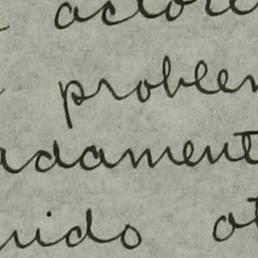 actore
problem
adament
uido ot